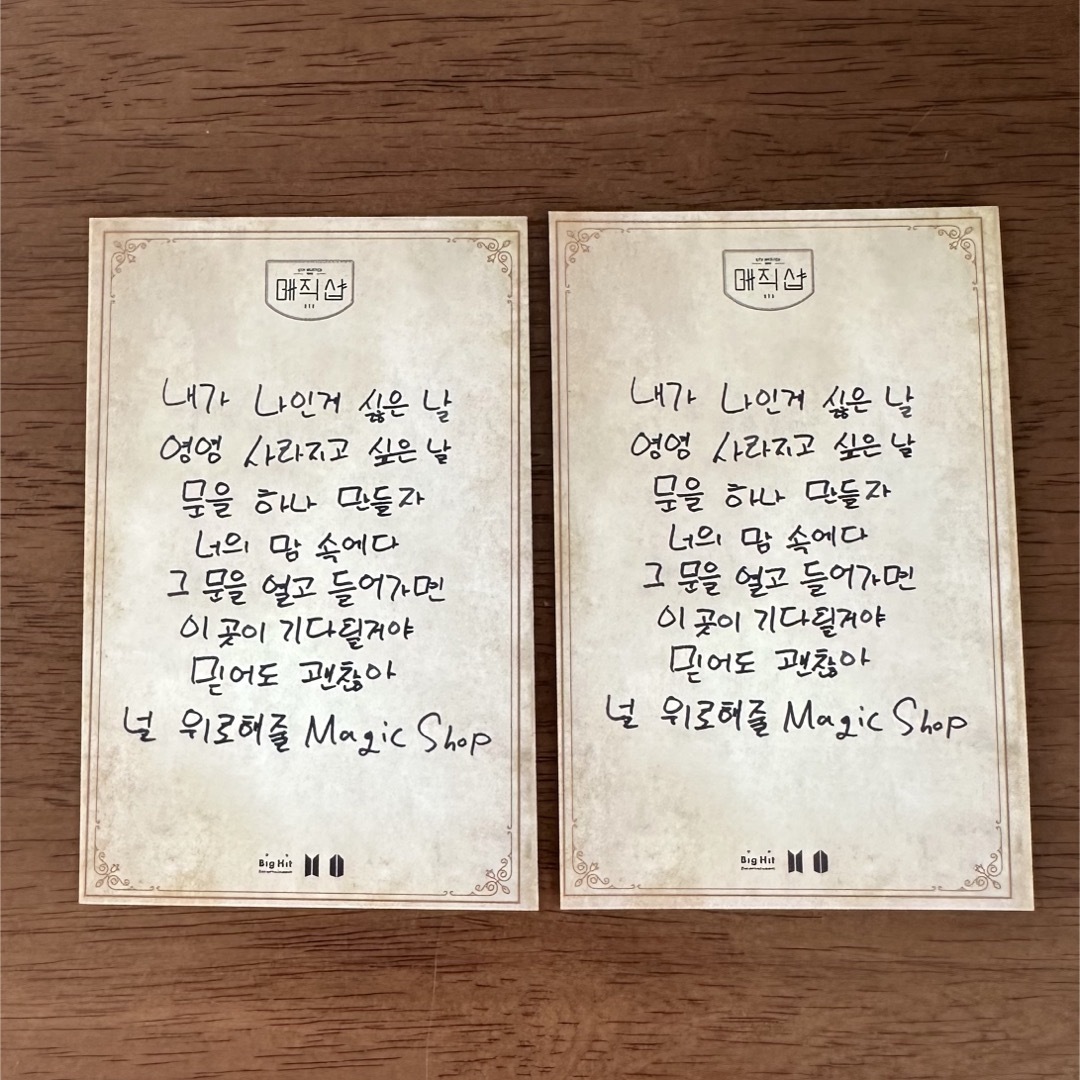 매직샵
BTS
내가 나인게 싫은 날
영영 사라지고 싶은 날
문을 하나 만들자
너의 맘 속에다
그 문을 열고 들어가면
이 곳이 기다릴거야
믿어도 괜찮아
널 위로해줄 Magic Shop
Big Hit
Entertainment
매직샵
BTS
내가 나인게 싫은 날
영영 사라지고 싶은 날
문을 하나 만들자
너의 맘 속에다
그 문을 열고 들어가면
이 곳이 기다릴거야
믿어도 괜찮아
널 위로해줄 Magic Shop
Big Hit
Entertainment